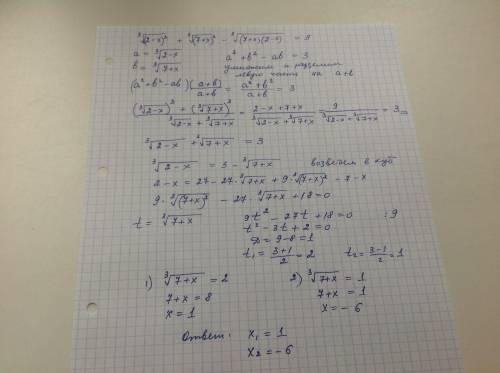 ∛(2-x)² + ∛(7+x)² - ∛(7+x)(2-x) = 3
a = ∛2-x     a² + b² - ab = 3
b = ∛7+x     умножаем и разделим
левую часть на a+b
(a² + b² - ab)(a+b)/(a+b) = (a³ + b³)/(a+b) = 3
((∛2-x)³ + (∛7+x)³)/(∛2-x + ∛7+x) = (2-x+7+x)/(∛2-x + ∛7+x) = 9/(∛2-x + ∛7+x) = 3
∛2-x + ∛7+x = 3
∛2-x = 3 - ∛7+x     возведем в куб
2-x = 27 - 27·∛7+x + 9·∛(7+x)² - 7-x
9·∛(7+x)² - 27·∛7+x + 18 = 0
t = ∛7+x     9t² - 27t + 18 = 0     :9
t² - 3t + 2 = 0
D = 9-8 = 1
t₁ = (3+1)/2 = 2     t₂ = (3-1)/2 = 1
1) ∛7+x = 2     2) ∛7+x = 1
7+x = 8     7+x = 1
x = 1     x = -6
Ответ: x₁ = 1
x₂ = -6